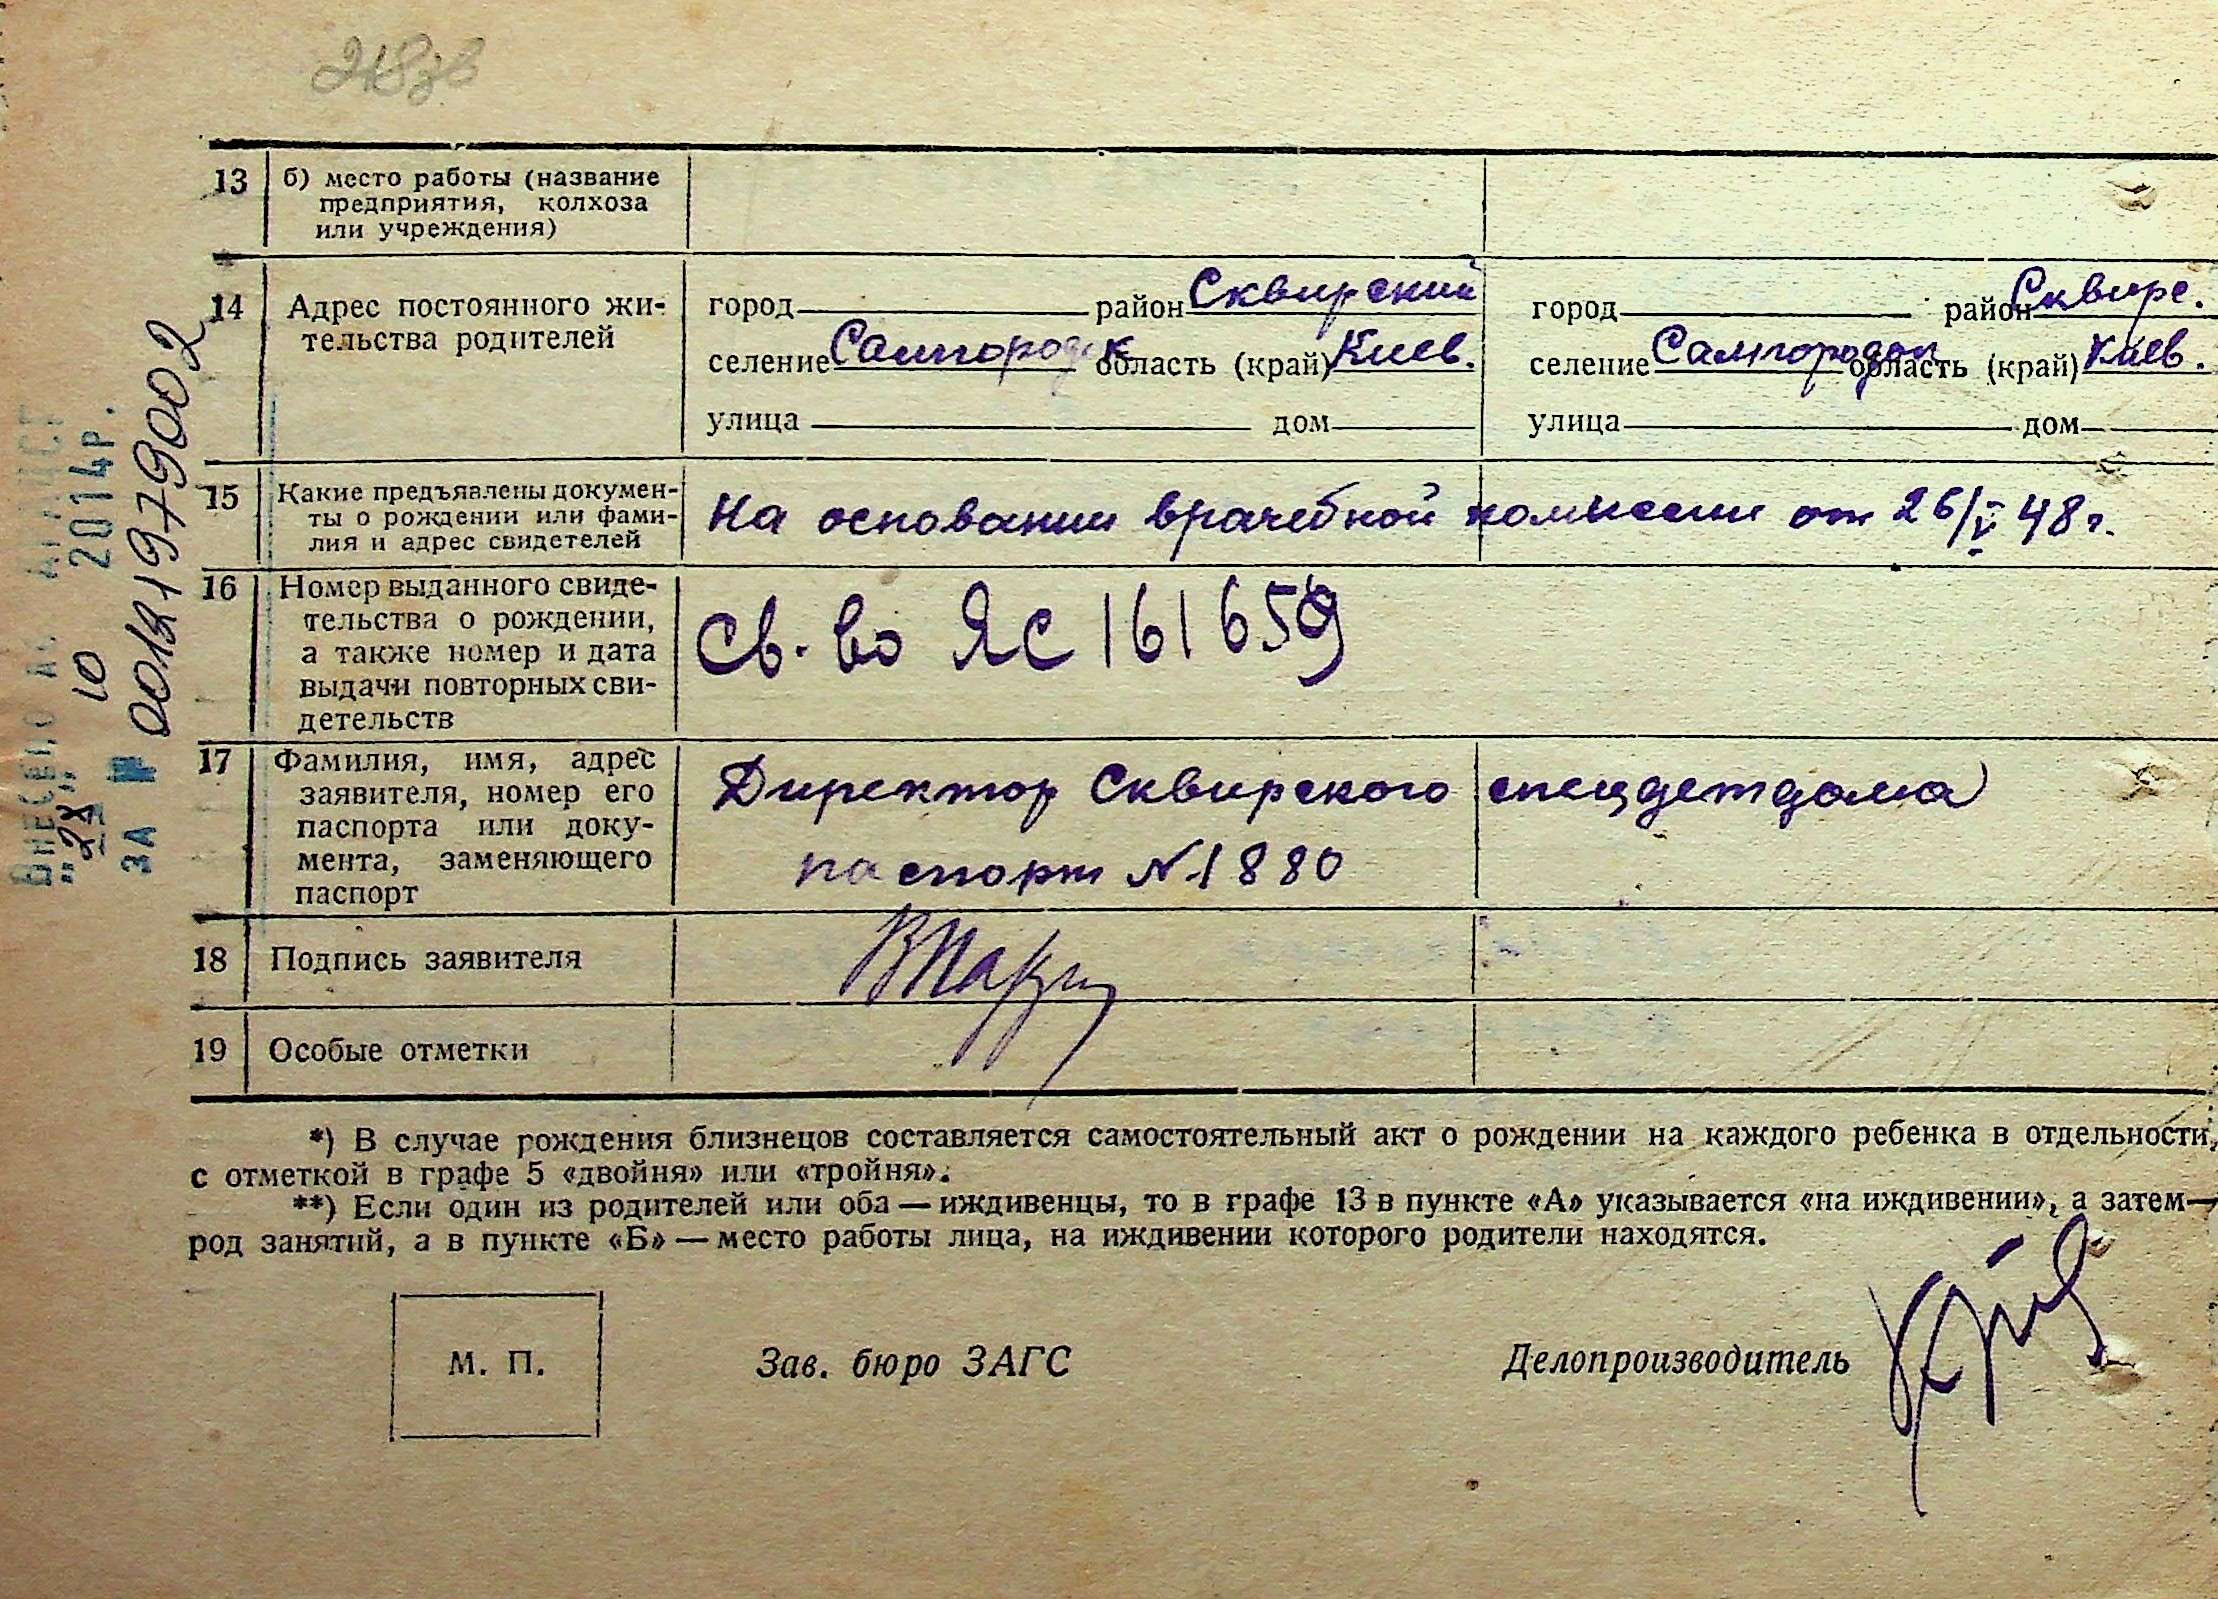 13 б) место работы (название
предприятия, колхоза
или учреждения)
14 Адрес постоянного жи-
тельства родителей
город район Сквирский
селение Самгородок область (край) Киев.
улица дом
город район Сквирс.
селение Самгородок область (край) Киев.
улица дом
15 Какие предъявлены докумен-
ты о рождении или фами-
лия и адрес свидетелей
На основании врачебной комиссии от 26/V 48 г.
16 Номер выданного свиде-
тельства о рождении,
а также номер и дата
выдачи повторных сви-
детельств
Св-во ЯС 161659
17 Фамилия, имя, адрес
заявителя, номер его
паспорта или доку-
мента, заменяющего
паспорт
Директор Сквирского спецдетдома
паспорт № 1880
18 Подпись заявителя
19 Особые отметки
*) В случае рождения близнецов составляется самостоятельный акт о рождении на каждого ребенка в отдельности,
с отметкой в графе 5 «двойня» или «тройня».
**) Если один из родителей или оба — иждивенцы, то в графе 13 в пункте «А» указывается «на иждивении», а затем —
род занятий, а в пункте «Б» — место работы лица, на иждивении которого родители находятся.
М. П.
Зав. бюро ЗАГС
Делопроизводитель
10 2014р.
ЗА № 00121979002